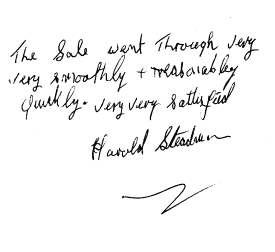 The Sale want Through very
very smoothly + reasonabley
Quickly. very very sattisfied
Harold Steadman